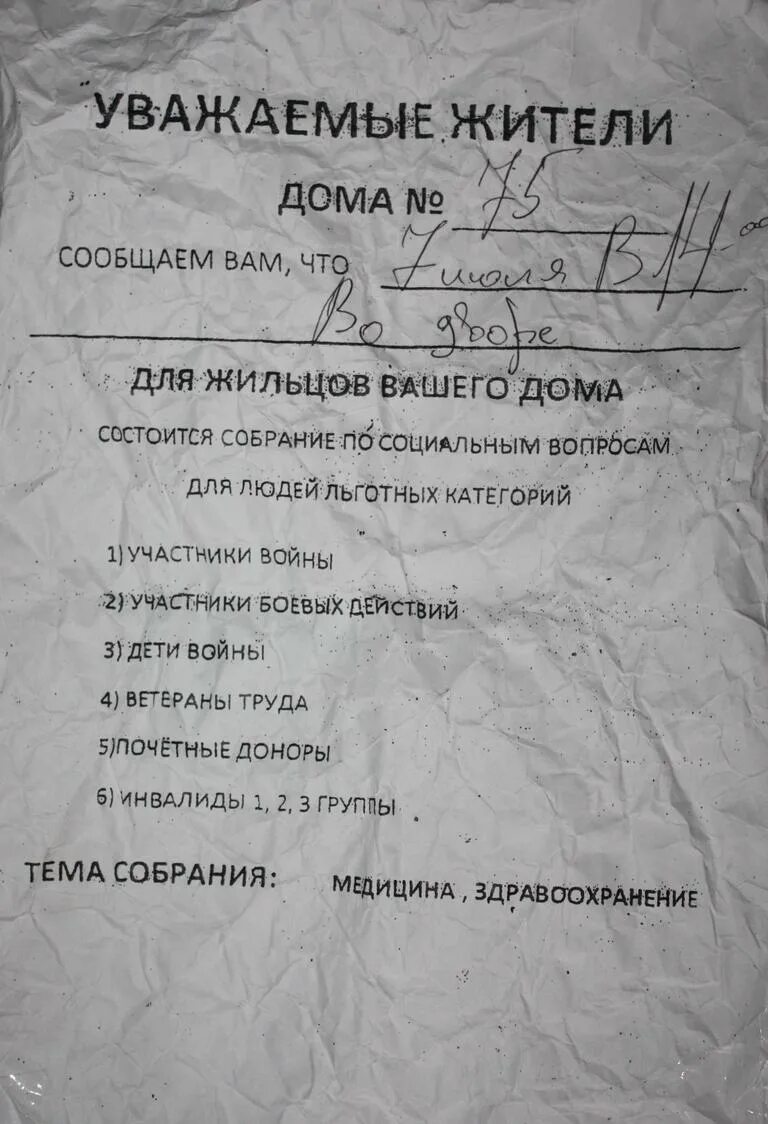 УВАЖАЕМЫЕ ЖИТЕЛИ
ДОМА № 75
СООБЩАЕМ ВАМ, ЧТО 7 июля В 14-00
Во дворе
ДЛЯ ЖИЛЬЦОВ ВАШЕГО ДОМА
СОСТОИТСЯ СОБРАНИЕ ПО СОЦИАЛЬНЫМ ВОПРОСАМ
ДЛЯ ЛЮДЕЙ ЛЬГОТНЫХ КАТЕГОРИЙ
1) УЧАСТНИКИ ВОЙНЫ
2) УЧАСТНИКИ БОЕВЫХ ДЕЙСТВИЙ
3) ДЕТИ ВОЙНЫ
4) ВЕТЕРАНЫ ТРУДА
5)ПОЧЁТНЫЕ ДОНОРЫ
6) ИНВАЛИДЫ 1, 2, 3 ГРУППЫ
ТЕМА СОБРАНИЯ: МЕДИЦИНА , ЗДРАВООХРАНЕНИЕ